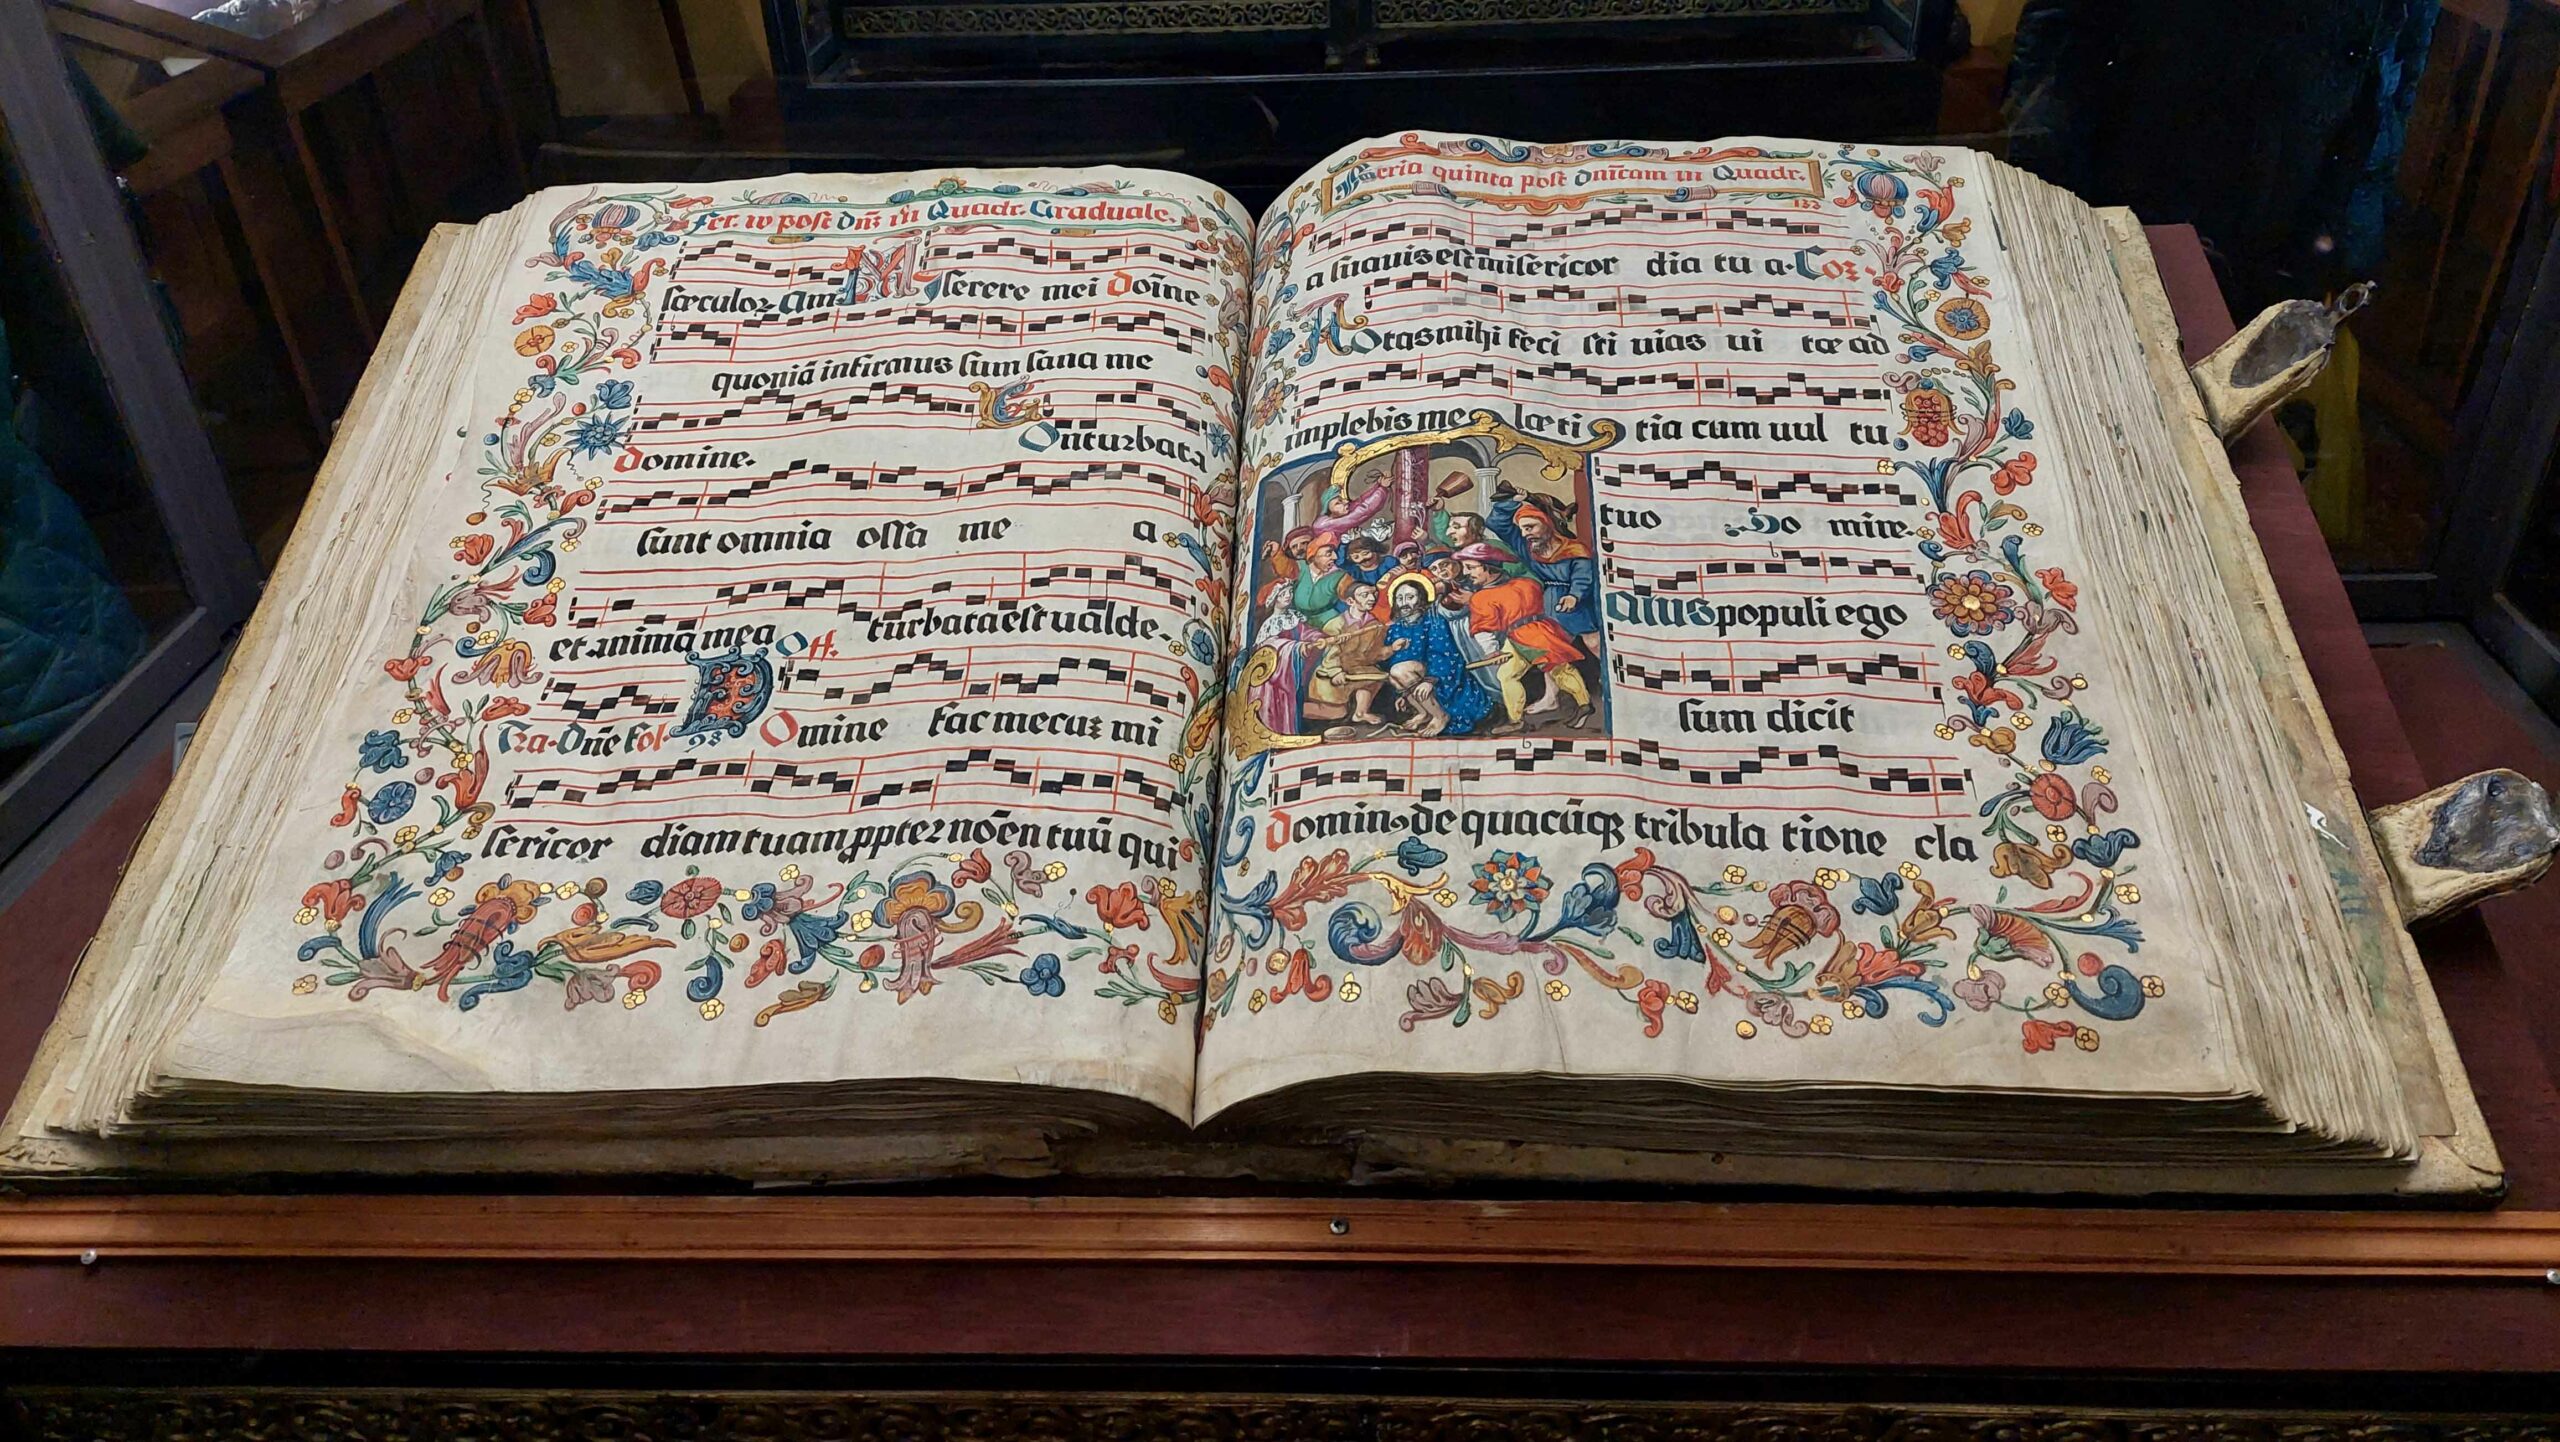 Fer. iv post dñ: in Quadr. Graduale.
sæculoꝝ Am. MIserere mei Domĩe
quoniã infirmus sum sana me
domine. COnturbata
sunt omnia ossa me a
et anima mea turbata est ualde.
Off.
Tra. Dñe fol. 98 DOmine fac mecuꝫ mi
sericor diam tuam ꝓpter nõen tuũ qui
Feria quinta post dnĩcam in Quadr.
133
a suauis est misericor dia tu a. Coꝫ.
NOtas mihi feci sti uias ui tæ ad
implebis me læti tia cum uul tu
tuo Do mine.
SAlus populi ego
sum dicit
dominꝰ de quacũqꝫ tribula tione cla